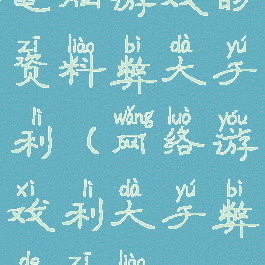 游戏的
zī liào bì dà yú
资料弊大于
lì wǎng luò yóu
利(网络游
xì lì dà yú bì
戏利大于弊
de zī liào